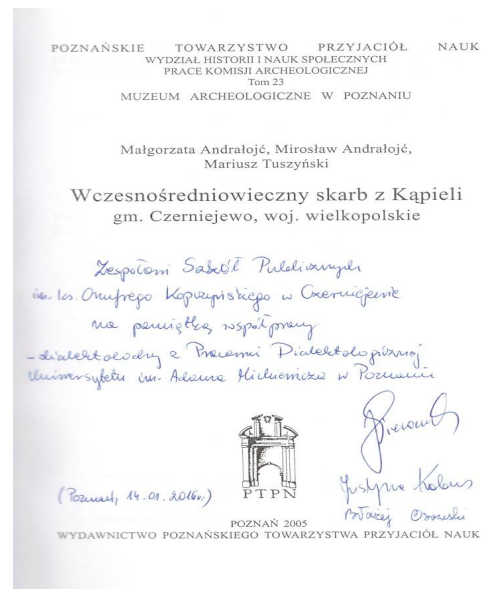 POZNAŃSKIE TOWARZYSTWO PRZYJACIÓŁ NAUK
WYDZIAŁ HISTORII I NAUK SPOŁECZNYCH
PRACE KOMISJI ARCHEOLOGICZNEJ
Tom 23
MUZEUM ARCHEOLOGICZNE W POZNANIU
Małgorzata Andrałojć, Mirosław Andrałojć,
Mariusz Tuszyński
Wczesnośredniowieczny skarb z Kąpieli
gm. Czerniejewo, woj. wielkopolskie
Zespołowi Szkół Publicznych
im. ks. Onufrego Kopczyńskiego w Czerniejewie
na pamiątkę współpracy
z Pracowni Dialektologicznej
Uniwersytetu im. Adama Mickiewicza w Poznaniu
PTPN
Justyna
Błażej
(Poznań, 14.01.2016r.)
POZNAŃ 2005
WYDAWNICTWO POZNAŃSKIEGO TOWARZYSTWA PRZYJACIÓŁ NAUK